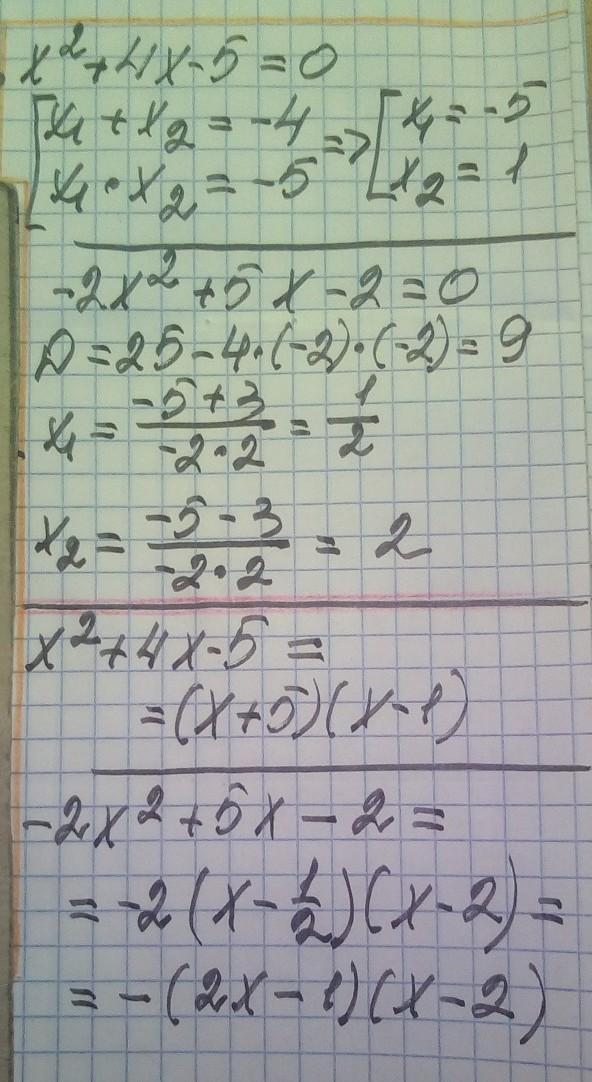 x²+4x-5=0
[x₁+x₂=-4 => [x₁=-5
x₁·x₂=-5 x₂=1
-2x²+5x-2=0
D=25-4·(-2)·(-2)=9
x₁=(-5+3)/(-2·2)=1/2
x₂=(-5-3)/(-2·2)=2
x²+4x-5=
=(x+5)(x-1)
-2x²+5x-2=
=-2(x-1/2)(x-2)=
=-(2x-1)(x-2)